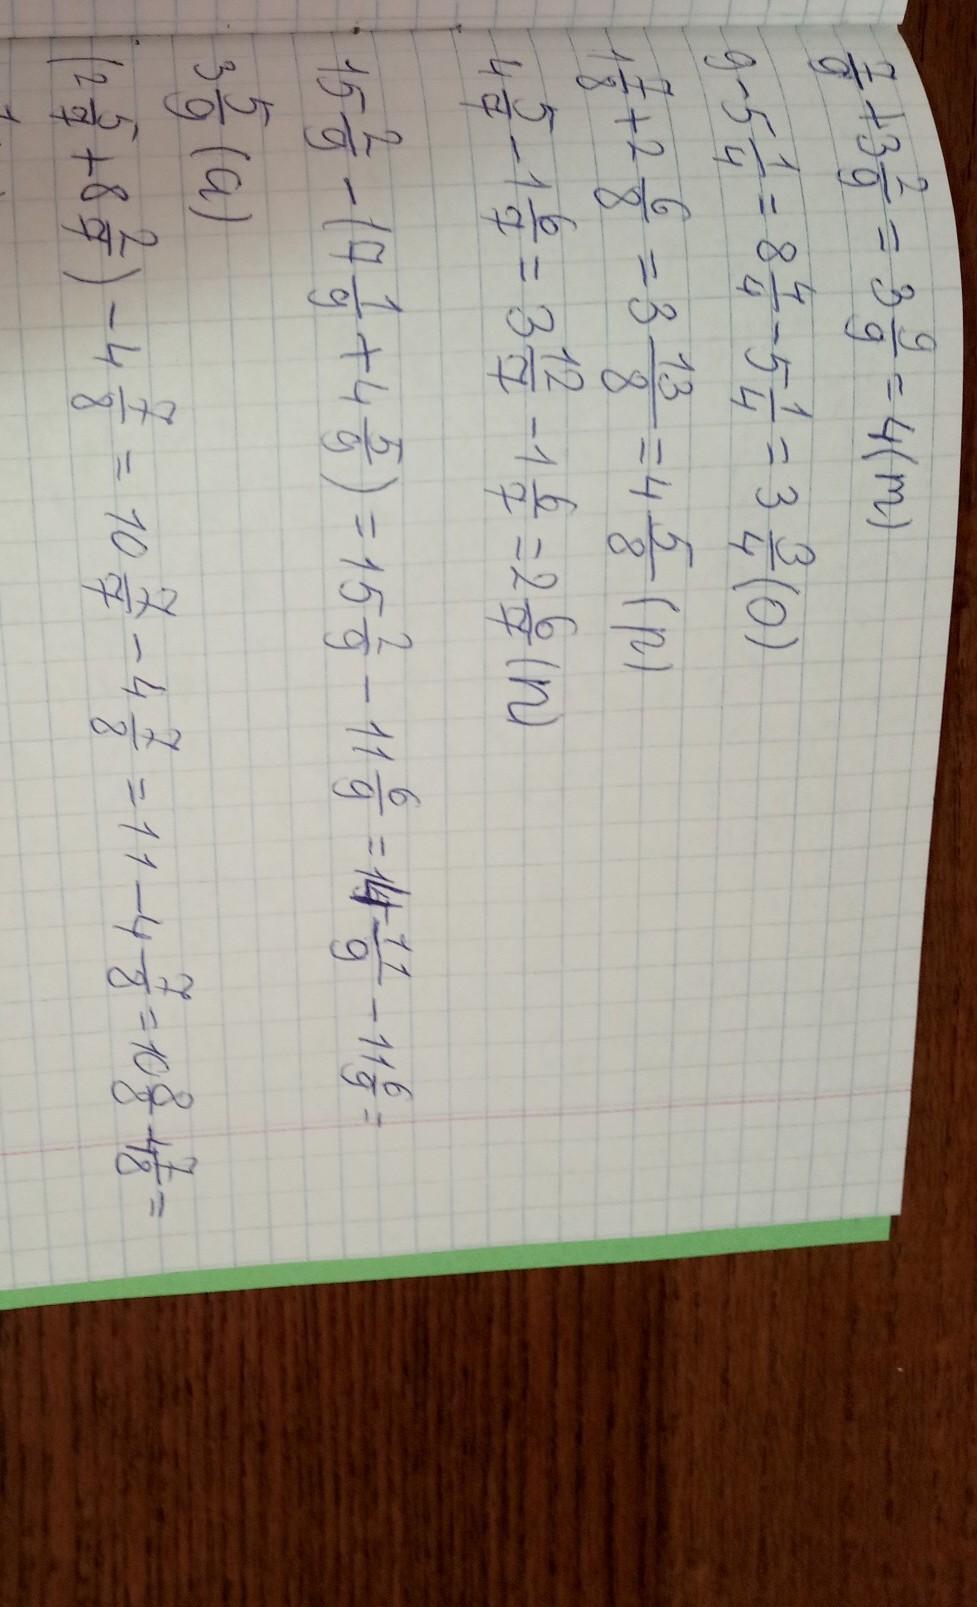 7/9 + 3 2/9 = 3 9/9 = 4 (т)
9 - 5 1/4 = 8 4/4 - 5 1/4 = 3 3/4 (о)
1 7/8 + 2 6/8 = 3 13/8 = 4 5/8 (р)
4 5/7 - 1 6/7 = 3 12/7 - 1 6/7 = 2 6/7 (п)
15 2/9 - (7 1/9 + 4 5/9) = 15 2/9 - 11 6/9 = 14 11/9 - 11 6/9 =
3 5/9 (а)
(2 5/7 + 8 2/7) - 4 7/8 = 10 7/7 - 4 7/8 = 11 - 4 7/8 = 10 8/8 - 4 7/8 =